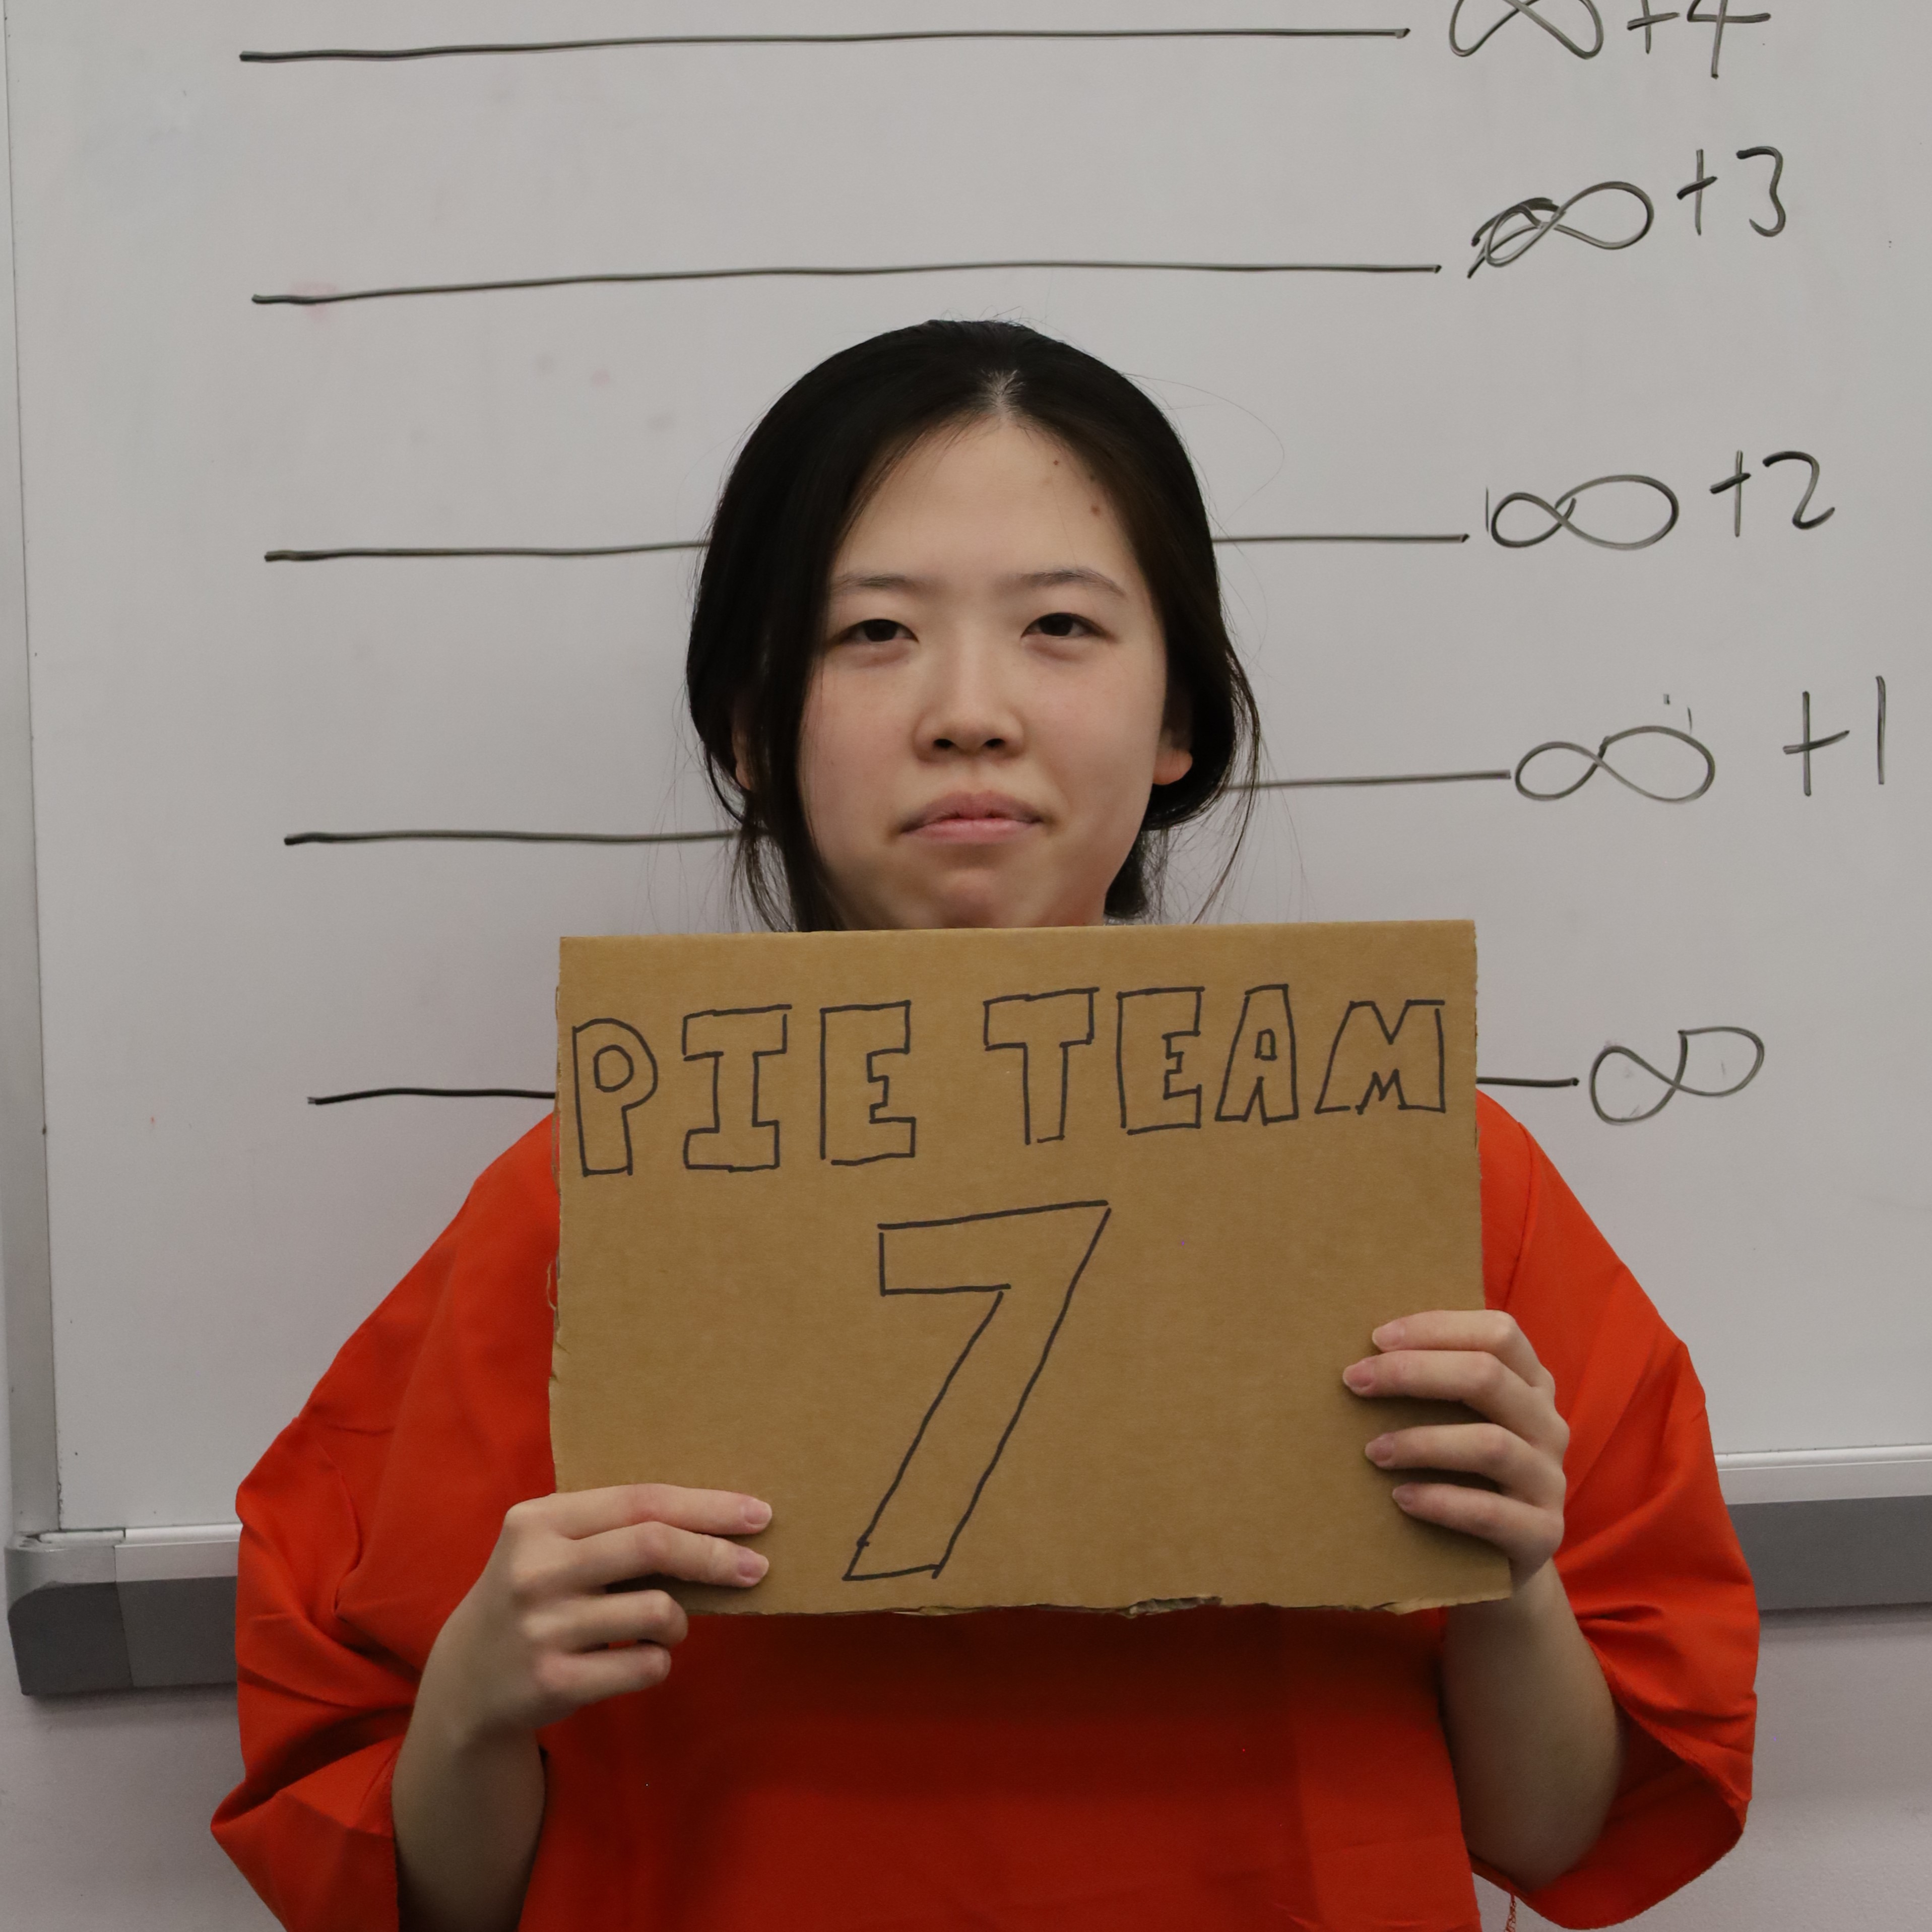 ∞+4
∞+3
∞+2
∞+1
∞
PIE TEAM
7